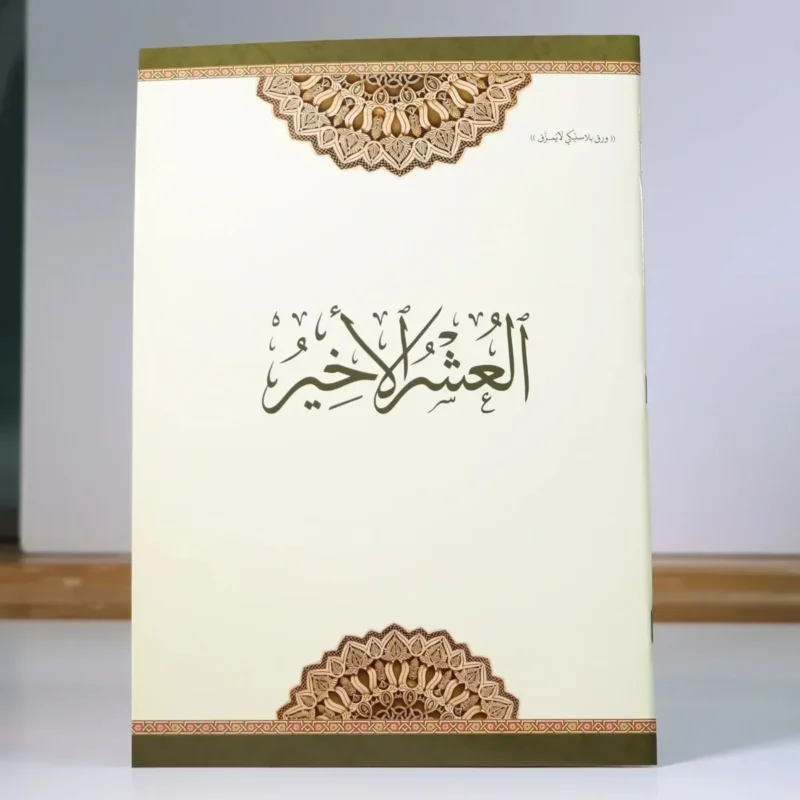 (( ورق بلاستيكي لايُمزق ))
ٱلعُشْرُ ٱلأَخِيرُ